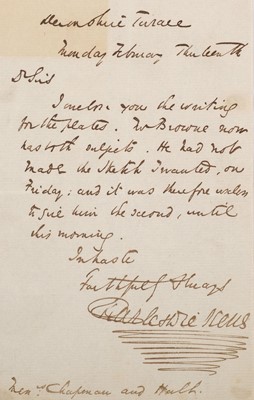 Devonshire Terrace
Monday February Thirteenth
Dr Sirs
I enclose you the writing
for the plates. Mr Browne now
has both subjects. He had not
made the Sketch I wanted, on
Friday; and it was therefore useless
to give him the second, until
this morning.
In haste
Faithfully Always
Charles Dickens
Messrs Chapman and Hall.